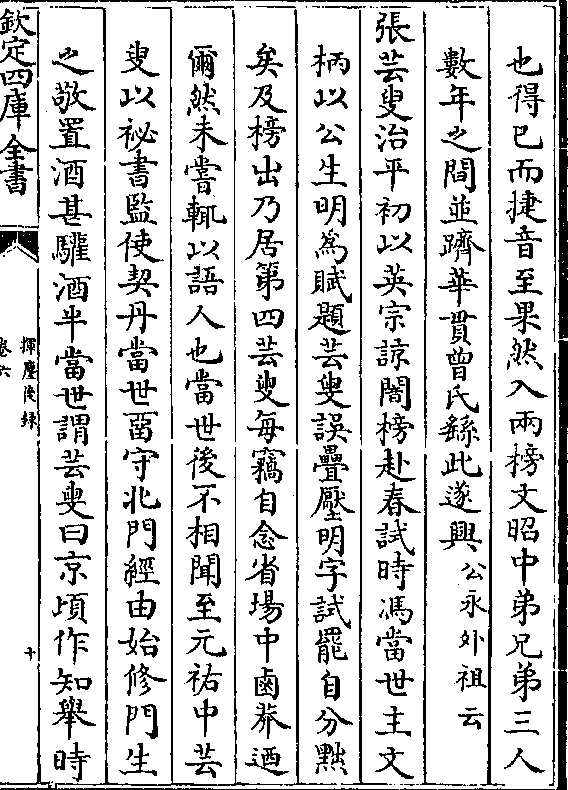 也得已而捷音至果然入兩榜文昭中弟兄弟三人
數年之間並躋華貫曾氏繇此遂興公永外祖云
張芸叟治平初以英宗諒闇榜赴春試時馮當世主文
柄以公生明為賦題芸叟誤疊壓明字試罷自分黜
矣及榜出乃居第四芸叟每竊自念省場中鹵莽迺
爾然未嘗輒以語人也當世後不相聞至元祐中芸
叟以祕書監使契丹當世留守北門經由始修門生
之敬置酒甚驩酒半當世謂芸叟曰京頃作知舉時
欽定四庫全書
揮麈後錄
卷六
十